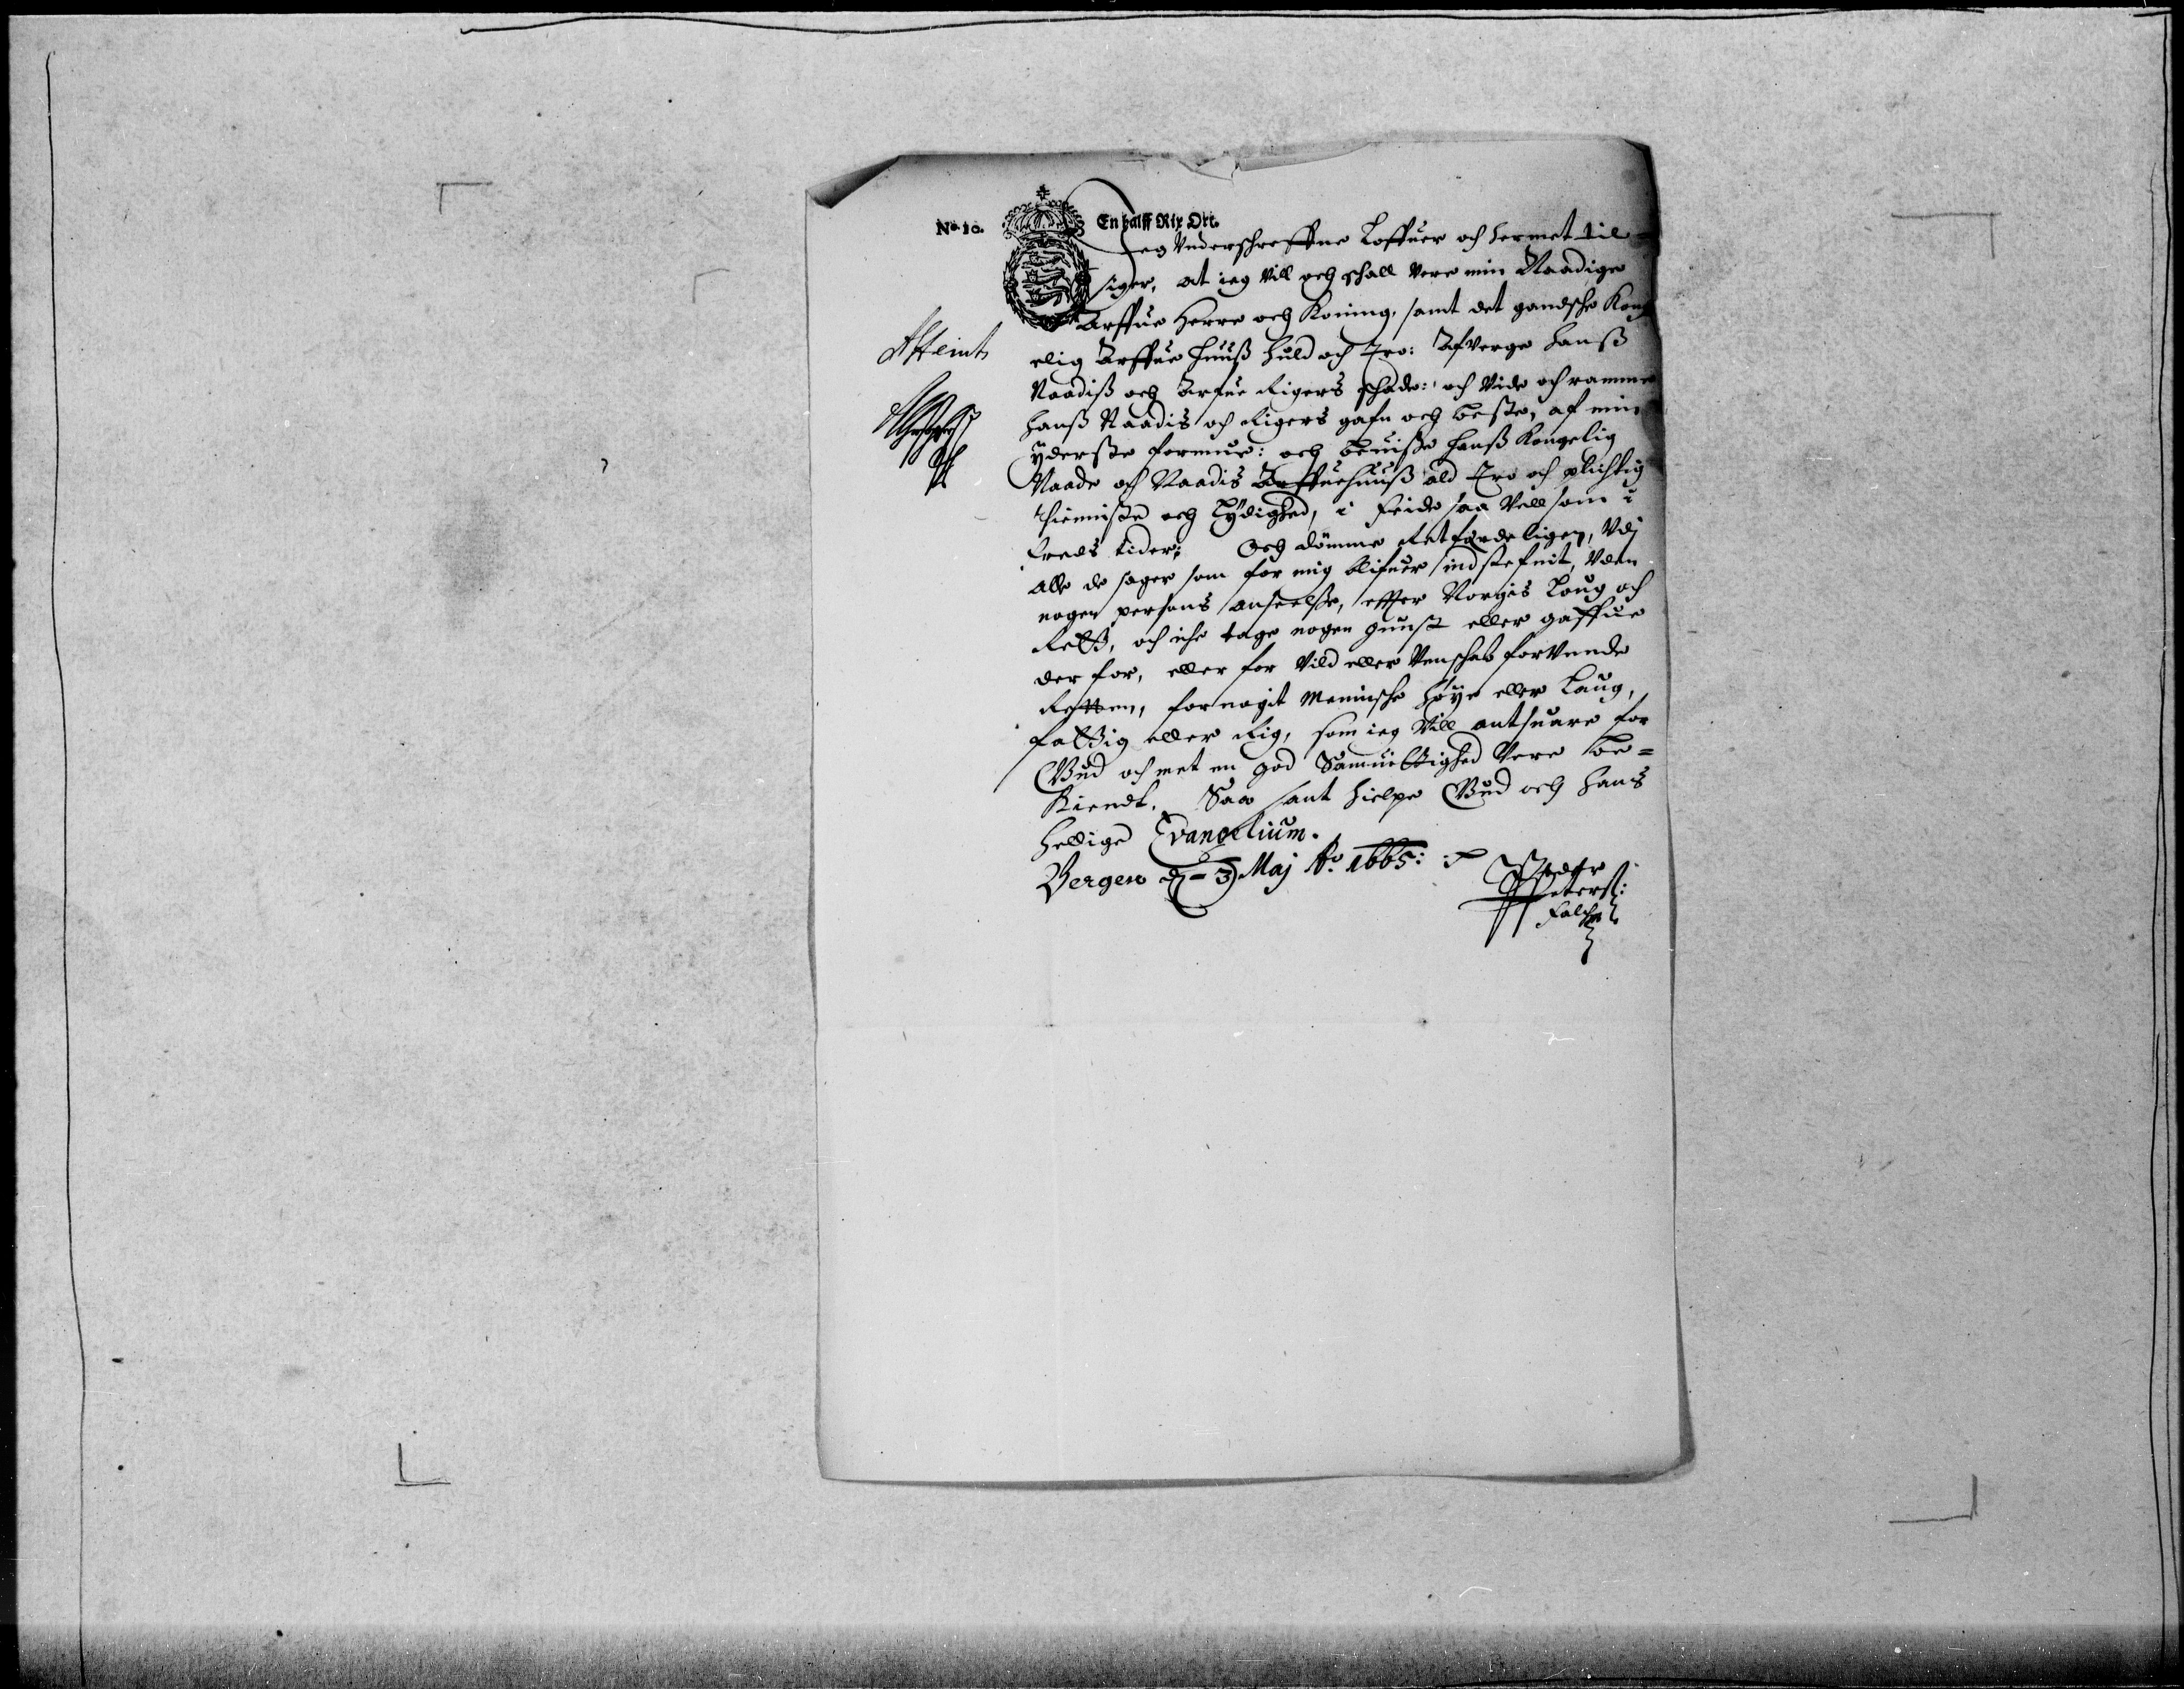 No 10.
En halff Rix Ort.
Jeg Vnderschreffne Loffuer och hermet til-
siger, at ieg Vill och schall Vere min Naadige
Arffue Herre och Koning, samt det gandsche Kong
elig Arffue Huuß huld och Tro: Afverge Hanß
Naadiß och Arfue Rigers schade: och Vide och ramme
Hanß Naadis och Rigers gafn och beste, af min
yderste formue: och beuiße Hanß Kongelig
Naade och Naadis Arffuehuuß ald Tro och plichtig
thienniste och Lydighed, i Feide saa Vell som i
freds tider; Och dømme Retferdeligen, Vdj
alle de sager som for mig blifuer indstefnit, Vden
nogen persons anseelse, effter Norgis Loug och
Rett, och iche tage nogen gunst eller gaffue
der for, eller for Vild eller Venschab forVende
Retten, for nogit Mennische høye eller Laug,
fattig eller Rig, som ieg Vill antsuare for
Gud och met en god Samuittighed Vere be=
kiendt. Saa sant hielpe Gud och Hans
hellige Evangelium.
Bergen dj - 3 Maj Ao. 1665:
Peder
Peters:
Falch
Attent